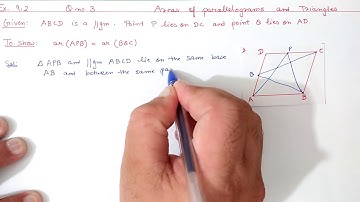 Ex. 9.2 Q no 3 Areas of parallelograms and Triangles
Given: ABCD is a ||gm. Point P lies on DC and point Q lies on AD.
To Show: ar (APB) = ar (BQC)
Sol: △ APB and ||gm ABCD lie on the same base
AB and between the same pa
D P C
A B